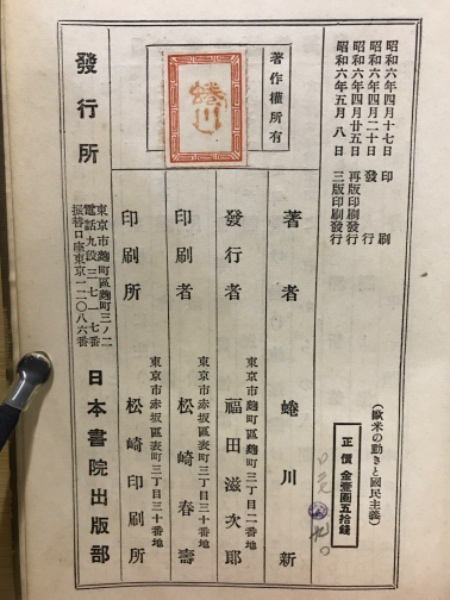 昭和六年四月十七日 印刷
昭和六年四月二十日 發行
昭和六年四月廿五日 再版印刷發行
昭和六年五月八日 三版印刷發行
(歐米の動きと國民主義)
正價 金壹圓五拾錢
著作權所有
蜷川
著者 蜷川新
東京市麹町區麹町三丁目二番地
發行者 福田滋次郎
東京市赤坂區表町三丁目三十番地
印刷者 松崎春壽
東京市赤坂區表町三丁目三十番地
印刷所 松崎印刷所
發行所
東京市麹町區麹町三ノ二
電話九段三七一七番
振替口座東京一二〇八六番
日本書院出版部